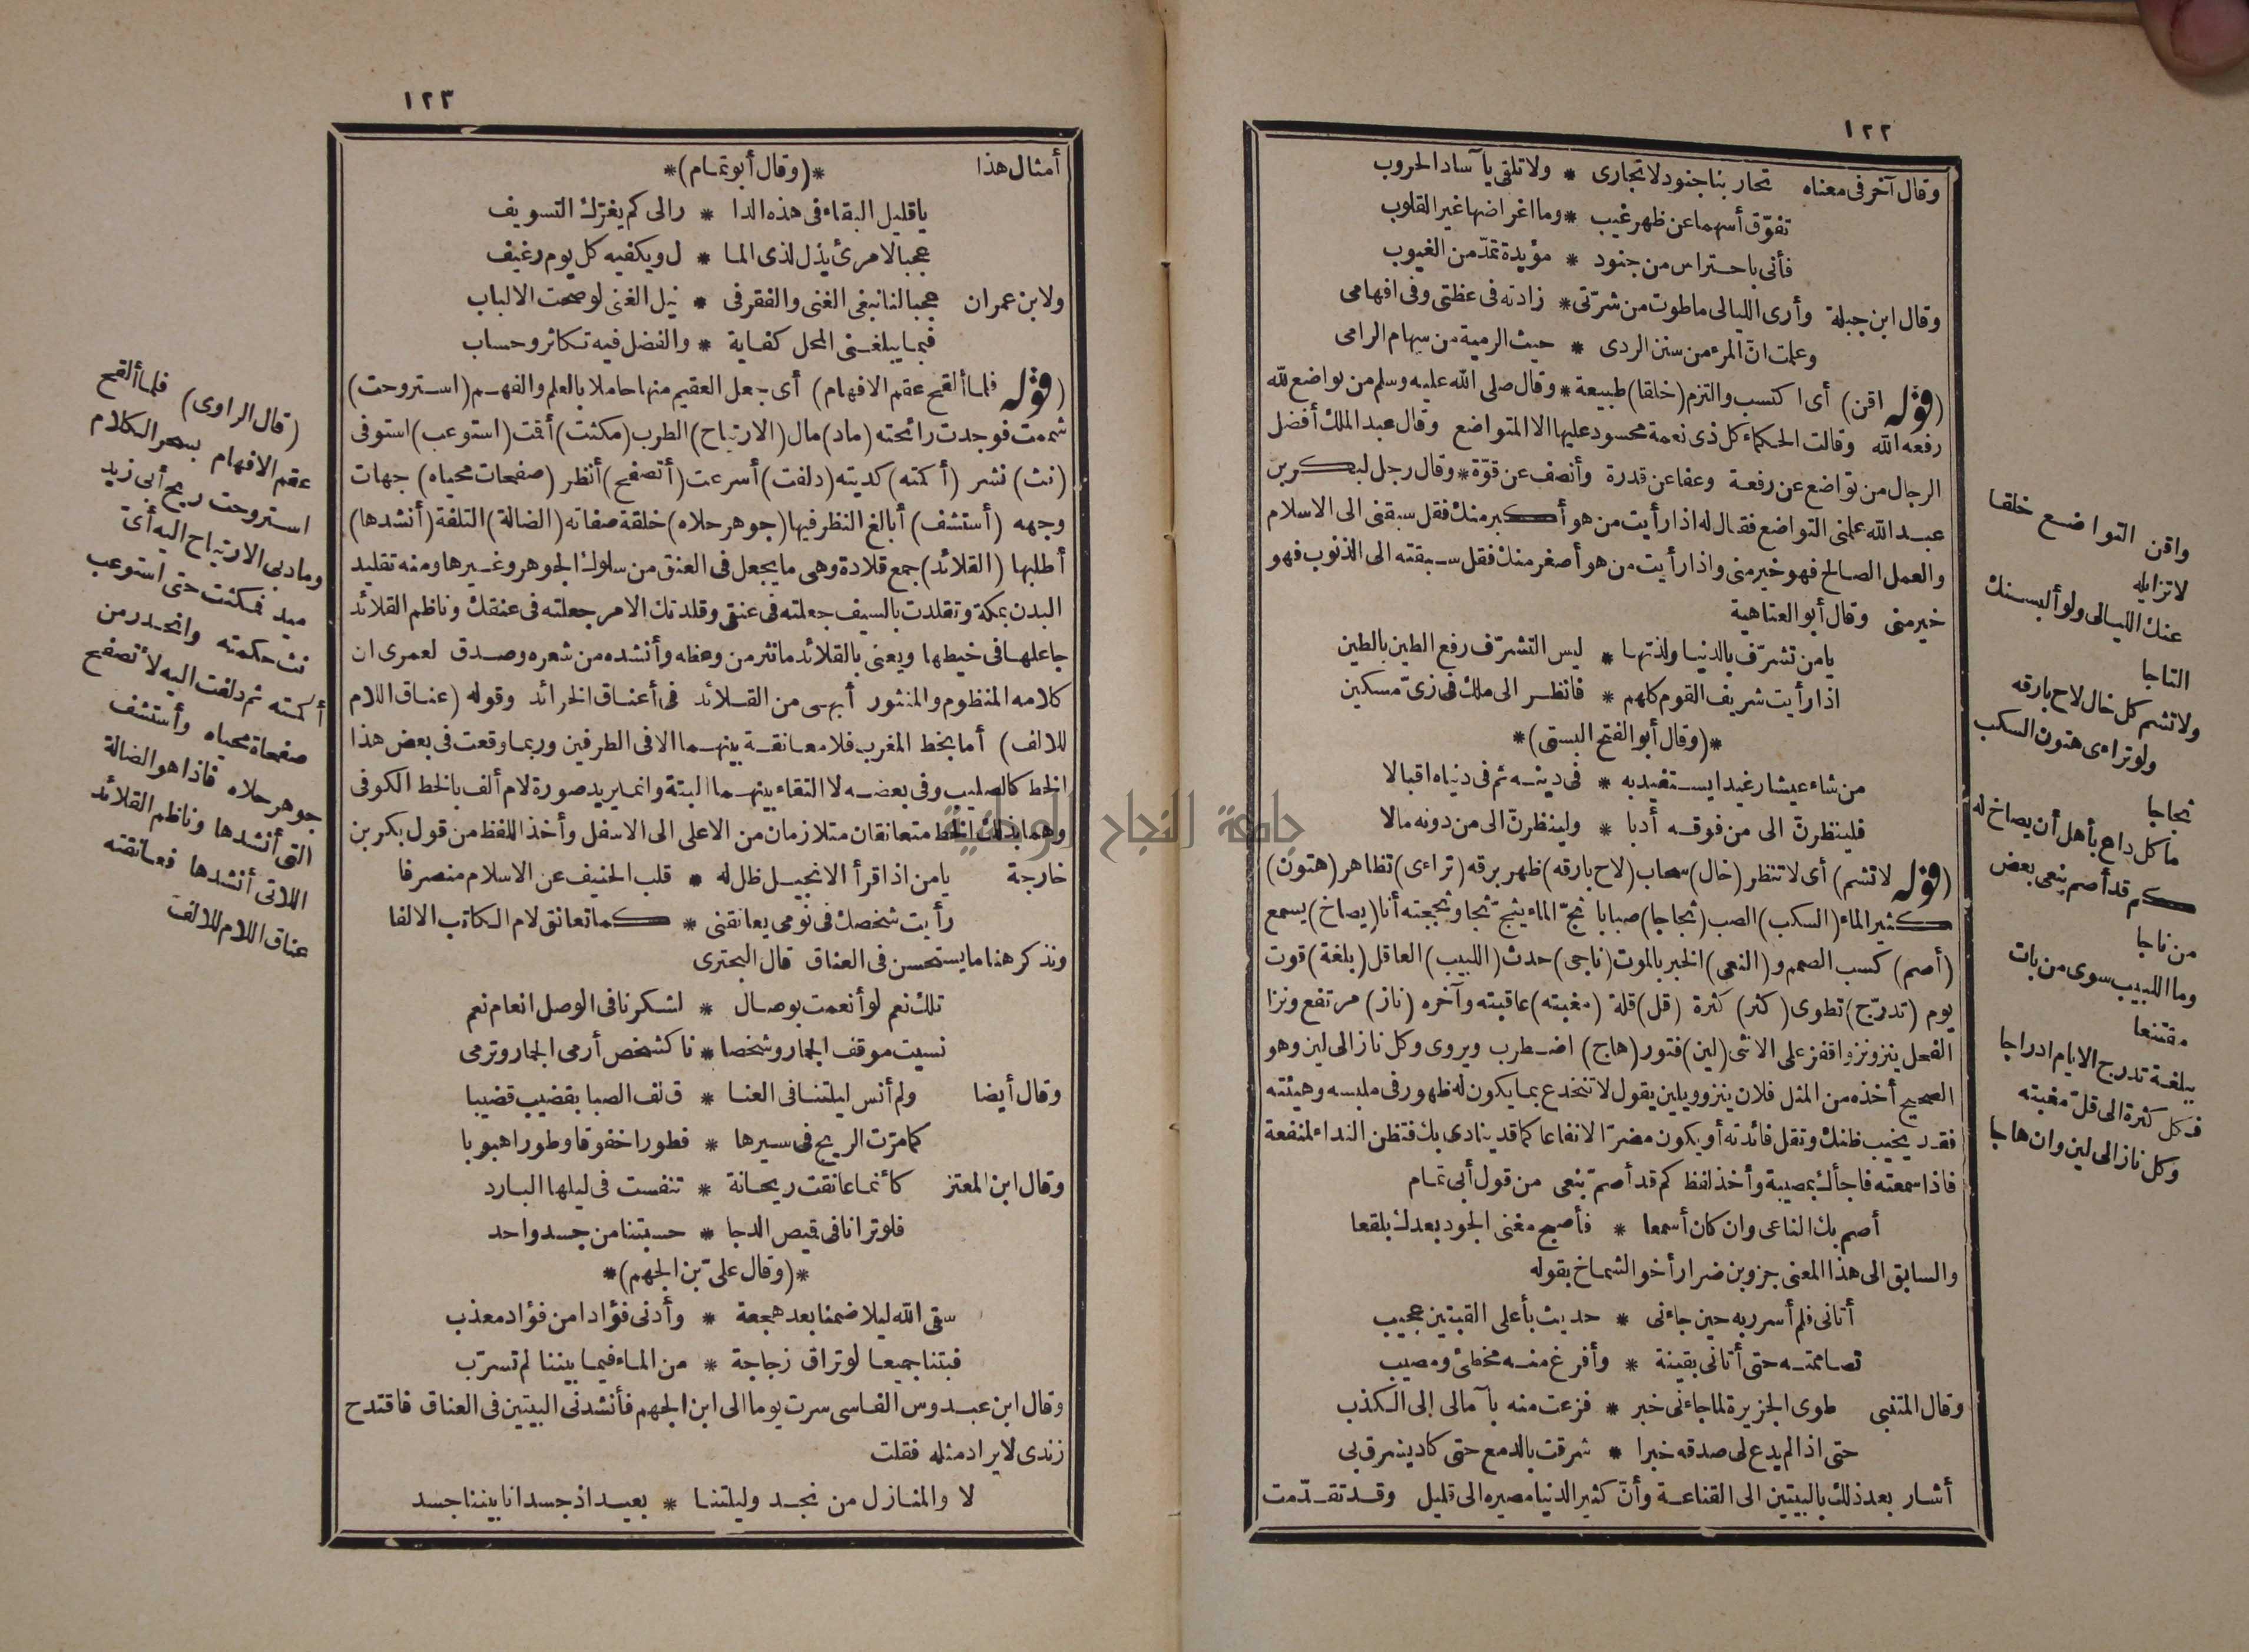 ١٢٢
وقال آخر فى معناه تحار بنا جنود لا تجارى * ولا تلقى بآساد الحروب
تفوّق أسهما عن ظهر غيب * وما اغراضها غير القلوب
فأنى باحتراس من جنود * مؤيدة تمدّ من الغيوب
وقال ابن جبلة وأرى الليالى ما طوت من شرّتى * زادته فى عظتى وفى افهامى
وعلمت انّ المرء من سنن الردى * حيث الرمية من سهام الرامى
(قوله اقن) أى اكتسب والتزم (خلقا) طبيعة * وقال صلى الله عليه وسلم من تواضع لله
رفعه الله وقالت الحكماء كل ذى نعمة محسود عليها الا المتواضع وقال عبد الملك أفضل
الرجال من تواضع عن رفعة وعفا عن قدرة وأنصف عن قوّة * وقال رجل لبكر بن
عبد الله علمنى التواضع فقال له اذا رأيت من هو أكبر منك فقل سبقنى الى الاسلام
والعمل الصالح فهو خير منى واذا رأيت من هو أصغر منك فقل سبقته الى الذنوب فهو
خير منى وقال أبو العتاهية
يا من تشرّف بالدنيا ولذتها * ليس التشرّف رفع الطين بالطين
اذا رأيت شريف القوم كلهم * فانظر الى ملك فى زىّ مسكين
*(وقال أبو الفتح البستى)*
من شاء عيشا رغيدا يستفيد به * فى دينه ثم فى دنياه اقبالا
فلينظرنّ الى من فوقه أدبا * ولينظرنّ الى من دونه مالا
(قوله لا تشم) أى لا تنظر (خال) سحاب (لاح بارقه) ظهر برقه (تراءى) تظاهر (هتون)
كثير الماء (السكب) الصب (ثجاجا) صبابا ثجّ الماء يثجّ ثجا وثججته أنا (يصاخ) يسمع
(أصم) كسب الصمم و (النعى) الخبر بالموت (ناجى) حدث (اللبيب) العاقل (بلغة) قوت
يوم (تدرّج) تطوى (كثر) كثرة (قل) قلة (مغبته) عاقبته وآخره (ناز) مرتفع ونزا
الفحل ينزو نزوا قفز على الانثى (لين) فتور (هاج) اضطرب ويروى وكل ناز الى لين وهو
الصحيح أخذه من المثل فلان ينزو ويلين يقول لا تنخدع بما يكون له ظهور فى ملبسه وهيئته
فقد يخيب ظنك وتقل فائدته أو يكون مضرّا لا نفاعا كما قد ينادى بك فتظن النداء لمنفعة
فاذا سمعته فاجأك بمصيبة وأخذ لفظ كم قد أصمّ بنعى من قول أبى تمام
أصم بك الناعى وان كان أسمعا * فأصبح مغنى الجود بعدك بلقعا
والسابق الى هذا المعنى جزو بن ضرار أخو الشماخ بقوله
أتانى فلم أسرر به حين جاءنى * حديث بأعلى القبتين عجيب
تصاممته حتى أتانى يقينة * وأفرغ منه مخطئ ومصيب
وقال المتنبى طوى الجزيرة لما جاءنى خبر * فزعت منه بآمالى إلى الكذب
حتى اذا لم يدع لى صدقه خبرا * شرقت بالدمع حتى كاد يشرق بى
أشار بعد ذلك بالبيتين الى القناعة وأنّ كثير الدنيا مصيره الى قليل وقد تقدّمت
واقن التواضع خلقا
لا تزايله
عنك الليالى ولو ألبسنك
التاجا
ولا تشم كل خال لاح بارقه
ولو تراءى هتون السكب
ثجاجا
ما كل داع بأهل أن يصاخ له
كم قد أصم بنعى بعض
من ناجا
وما اللبيب سوى من بات
مقتنعا
ببلغة تدرج الايام ادراجا
فكل كثرة الى قلّ مغبته
وكل ناز الى لين وان هاجا
١٢٣
أمثال هذا *(وقال أبو تمام)*
يا قليل البقاء فى هذه الدا * ر الى كم يغرّك التسويف
عجبا لامرئ يذل لذى الما * ل ويكفيه كل يوم رغيف
ولابن عمران عجبا لنا نبغى الغنى والفقر فى * نيل الغنى لو صحت الالباب
فيما يبلغنى المحل كفاية * والفضل فيه تكاثر وحساب
(قوله فلما ألقح عقم الافهام) أى جعل العقيم منها حاملا بالعلم والفهم (استروحت)
شممت فوجدت رائحته (ماد) مال (الارتياح) الطرب (مكثت) أقمت (استوعب) استوفى
(نث) نشر (أكمته) كديته (دلفت) أسرعت (أتصفح) أنظر (صفحات محياه) جهات
وجهه (أستشف) أبالغ النظر فيها (جوهر حلاه) خلقة صفاته (الضالة) التلفة (أنشدها)
أطلبها (القلائد) جمع قلادة وهى ما يجعل فى العنق من سلوك الجوهر وغيرها ومنه تقليد
البدن بمكة وتقلدت بالسيف جعلته فى عنقى وقلدتك الامر جعلته فى عنقك وناظم القلائد
جاعلها فى خيطها ويعنى بالقلائد ما نثر من وعظه وأنشده من شعره وصدق لعمرى ان
كلامه المنظوم والمنثور أبهى من القلائد فى أعناق الخرائد وقوله (عناق اللام
للالف) أما بخط المغرب فلا معانقة بينهما الا فى الطرفين وربما وقعت فى بعض هذا
الخط كالصليب وفى بعضه لا التقاء بينهما البتة وانما يريد صورة لام ألف بالخط الكوفى
وهما بذلك الخط متعانقان متلازمان من الاعلى الى الاسفل وأخذ اللفظ من قول بكر بن
خارجة يا من اذا قرأ الانجيل ظل له * قلب الحنيف عن الاسلام منصرفا
رأيت شخصك فى نومى يعانقنى * كما تعانق لام الكاتب الالفا
ونذكر هنا ما يستحسن فى العناق قال البحترى
تلك نعم لو أنعمت بوصال * لشكرنا فى الوصل انعام نعم
نسيت موقف الجمار وشخصا * نا كشخص أرمى الجمار وترمى
وقال أيضا ولم أنس ليلتنا فى العنا * ق لف الصبا بقضيب قضيبا
كما مرّت الريح فى سيرها * فطورا خفوقا وطورا هبوبا
وقال ابن المعتز كأنما عانقت ريحانة * تنفست فى ليلها البارد
فلو ترانا فى قيص الدجا * حسبتنا من جسد واحد
*(وقال علىّ بن الجهم)*
سقى الله ليلا ضمنا بعد هجعة * وأدنى فؤادا من فؤاد معذب
فبتنا جميعا لو تراق زجاجة * من الماء فيما بيننا لم تسرّب
وقال ابن عبدوس الفاسى سرت يوما الى ابن الجهم فأنشدنى البيتين فى العناق فاقتدح
زندى لايراد مثله فقلت
لا والمنازل من نجد وليلتنا * بعيد اذ جسدانا بيننا جسد
(قال الراوى) فلما ألقح
عقم الافهام بسحر الكلام
استروحت ريح أبى زيد
وماد بى الارتياح اليه أىّ
ميد فمكثت حتى استوعب
نث حكمته وانحدر من
أكمته ثم دلفت اليه لأتصفح
صفحاة محياه وأستشف
جوهر حلاه فاذا هو الضالة
التى أنشدها وناظم القلائد
اللاتى أنشدها فعانقته
عناق اللام للالف
جامعة النجاح الوطنية